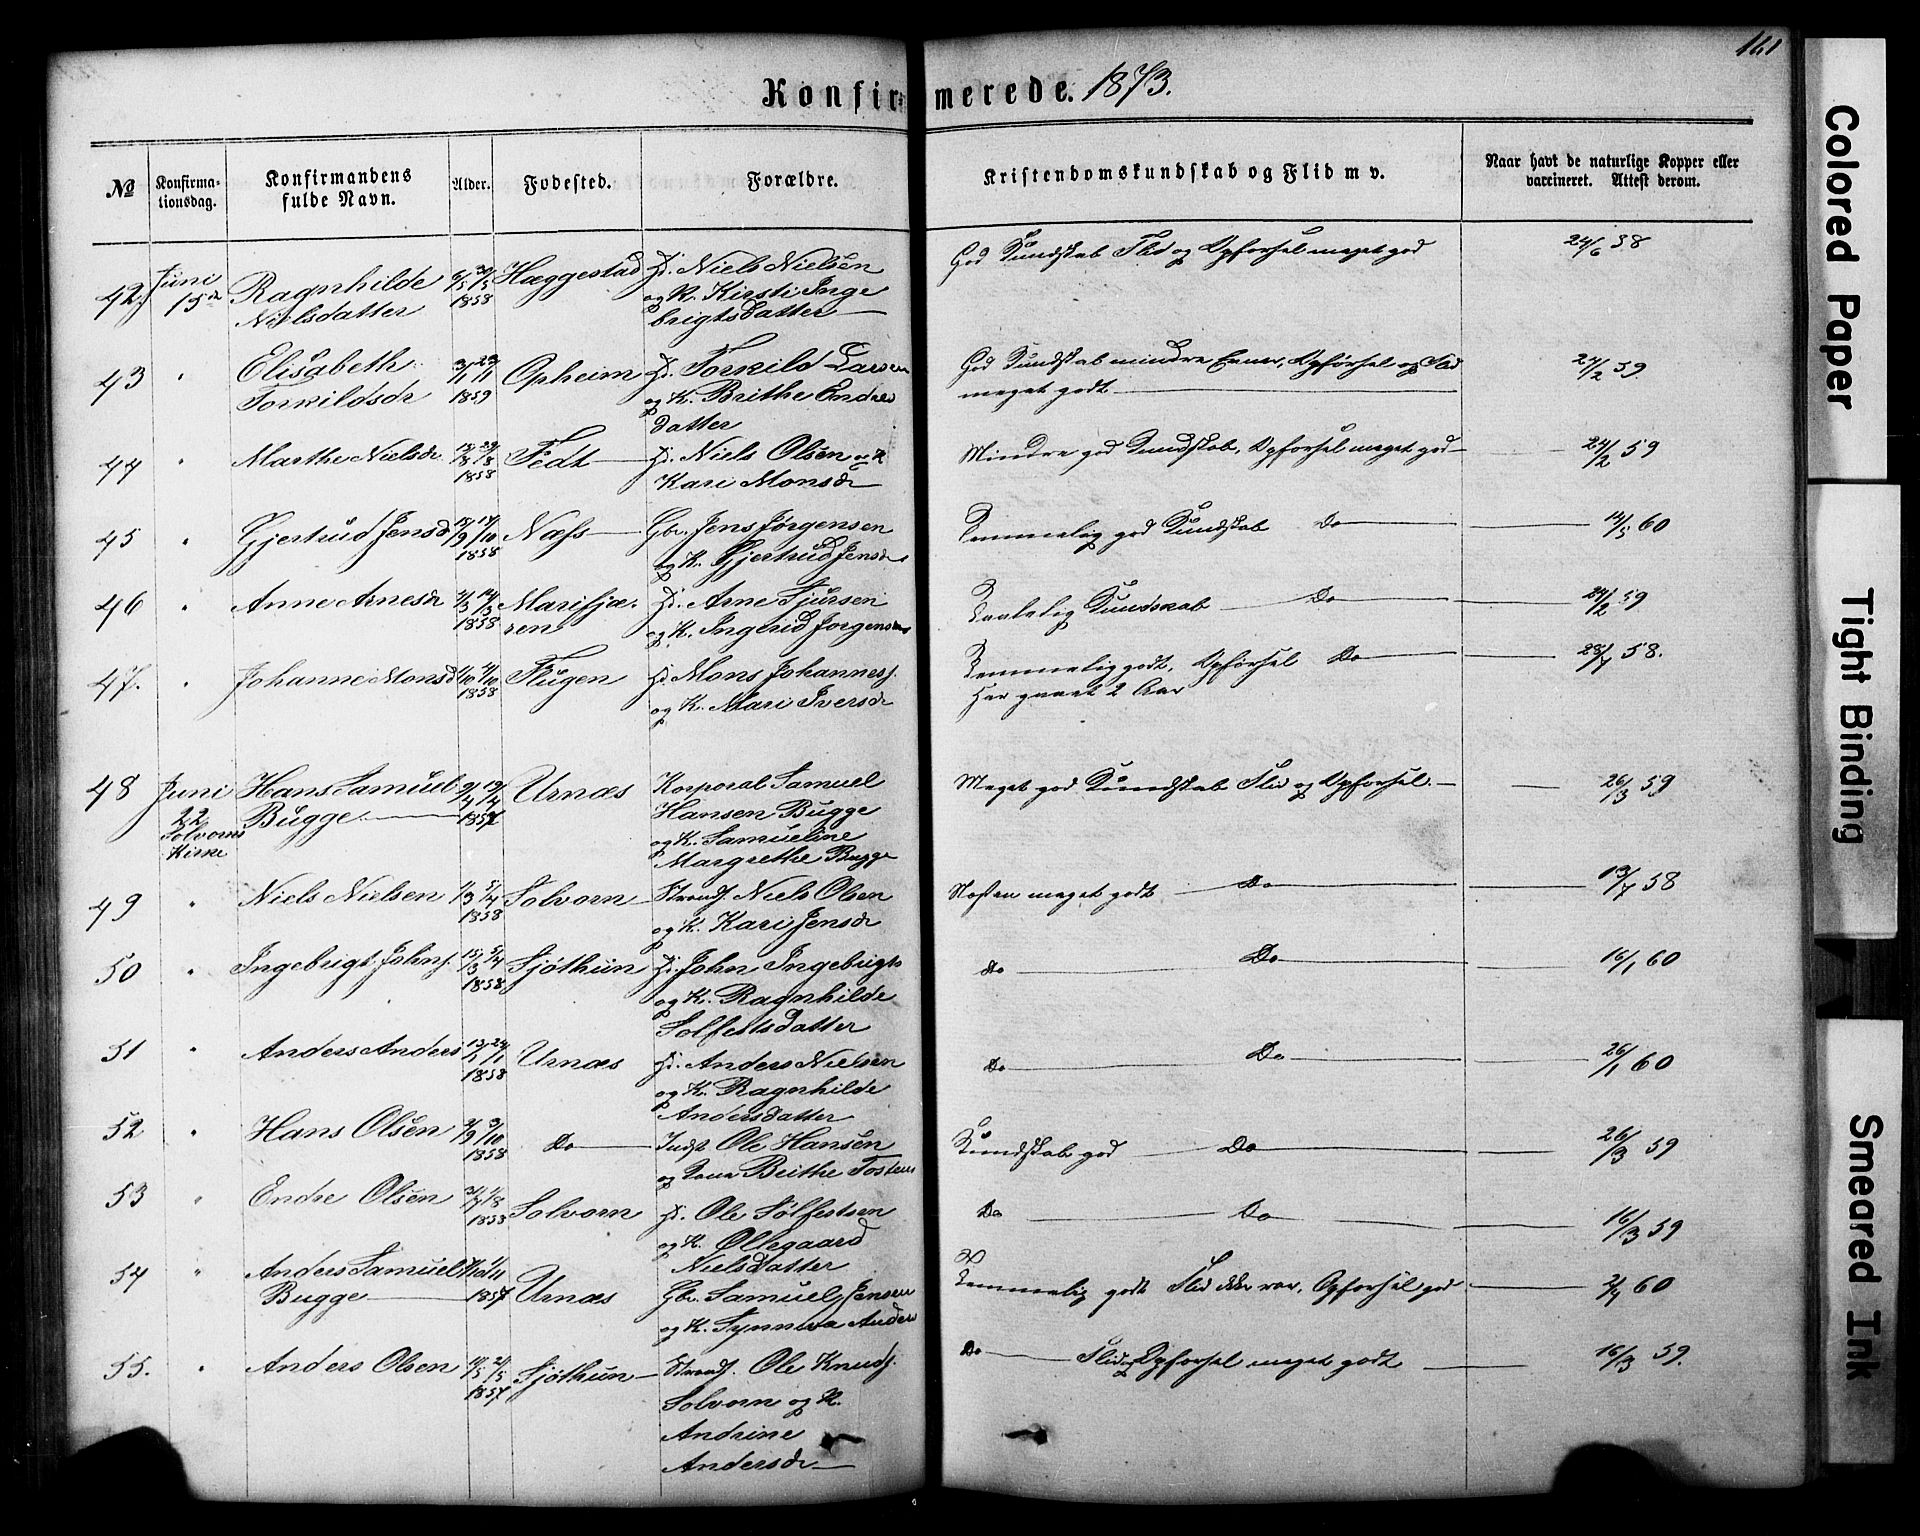 161
Konfirmerede. 1873.
No Konfirmationsdag. Konfirmandens fulde Navn. Alder. Fødested. Forældre. Kristendomskundskab og Flid m v. Naar havt de naturlige Kopper eller vaccineret. Attest derom.
42 Juni 15de Ragnhilde Nielsdatter 1858 Hæggestad Niels Nielsen og K. Kirsti Ingebrigtsdatter God Kundskab Flid og Opførsel meget god 24/6 58
43 " Elisabeth Torkildsdr 1859 Opheim Torkild Larsen og K. Brithe Endresdatter God Kundskab mindre Evner, Opførsel og Flid meget godt 24/2 59
44 " Marthe Nielsdr 1858 Fedt Niels Olsen og K Kari Monsdr Mindre god Kundskab, Opførsel meget god 24/2 59
45 " Gjertrud Jensd 1858 Næss Gbr. Jens Jørgensen og K. Gjertrud Jensdr Temmelig god Kundskab Do 14/5 60
46 " Anne Arnesdr 1858 Marifjæren Arne Sjursen og K. Ingerid Jørgensdr Taalelig Kundskab Do 24/2 59
47. " Johanne Monsd 1858 Flugen Mons Johannesj. og K. Mari Iversdr Temmelig godt, Opførsel Do 58.
Har gaaet 2 Aar
48 Juni 22 Solvorns Kirke Hans Samuel Bugge 1857 Urnæs Korporal Samuel Hansen Bugge og K. Samueline Margrethe Bugge Meget god Kundskab Flid og Opførsel. 26/3 59
49 " Niels Nielsen 1858 Solvorn Strands. Niels Olsen og K. Kari Jensdr Næsten meget godt Do 13/7 58
50 " Ingebrigt Johns. 1858 Sjøthun John Ingebrigts og K. Ragnhilde Solfestsdatter Do Do 16/1 60
51 " Anders Anders 1858 Urnæs Anders Nielsen og K. Ragnhilde Andersdatter Do Do 26/1 60
52 " Hans Olsen 1858 Do Indst Ole Hansen og Kona Brithe Tostens Kundskab god Do 26/3 59
53 " Endre Olsen 1858 Solvorn Ole Sølfestsen og K. Øllegaard Nielsdatter Do Do 16/3 59
54 " Anders Samuel Bugge 1857 Urnæs Gbr. Samuel Jensen og K. Synneva Anders Temmelig godt Flid ikke rar, Opførsel god 60
55. " Anders Olsen 1857 Sjøthun Strands. Ole Knuds. Solvorn og K. Andrine Andersdr Do Flid og Opførsel meget godt 16/3 59.
Colored Paper
Tight Binding
Smeared Ink